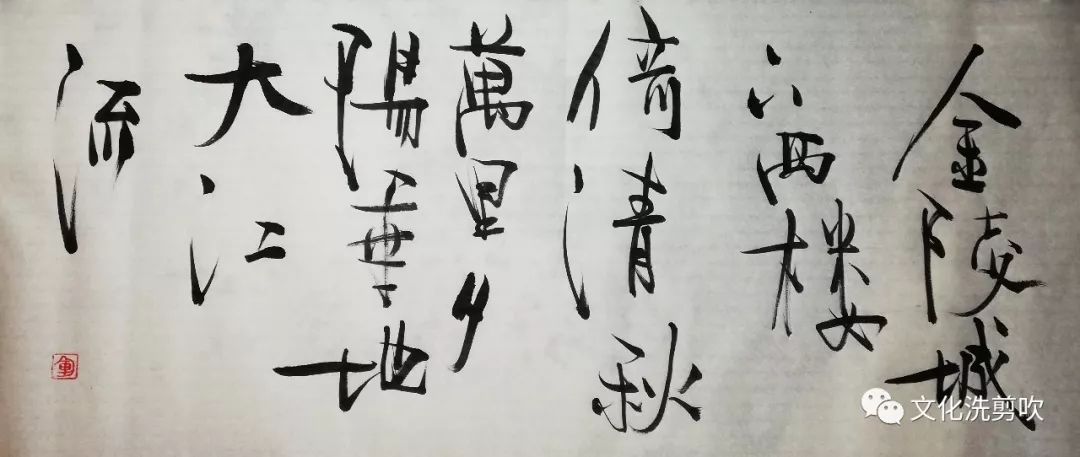 金陵城
上西楼
倚清秋
萬里夕
陽垂地
大江
流
文化洗剪吹